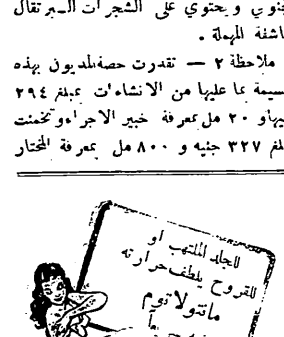 جنوبي ويحتوي على الشجرات البرتقال
ناشفة المهملة .
ملاحظة ٢ — تقدرت حصة المديون بهذه
سيمة بما عليها من الانشاءات بمبلغ ٢٩٤
يها و ٢٠ مل بمعرفة خبير الاجراء وتخمنت
لغ ٣٢٧ جنيه و ٨٠٠ مل بمعرفة المختار
للجلد الملتهب او
للقروح يلطف حرارته
مانتولاتوم